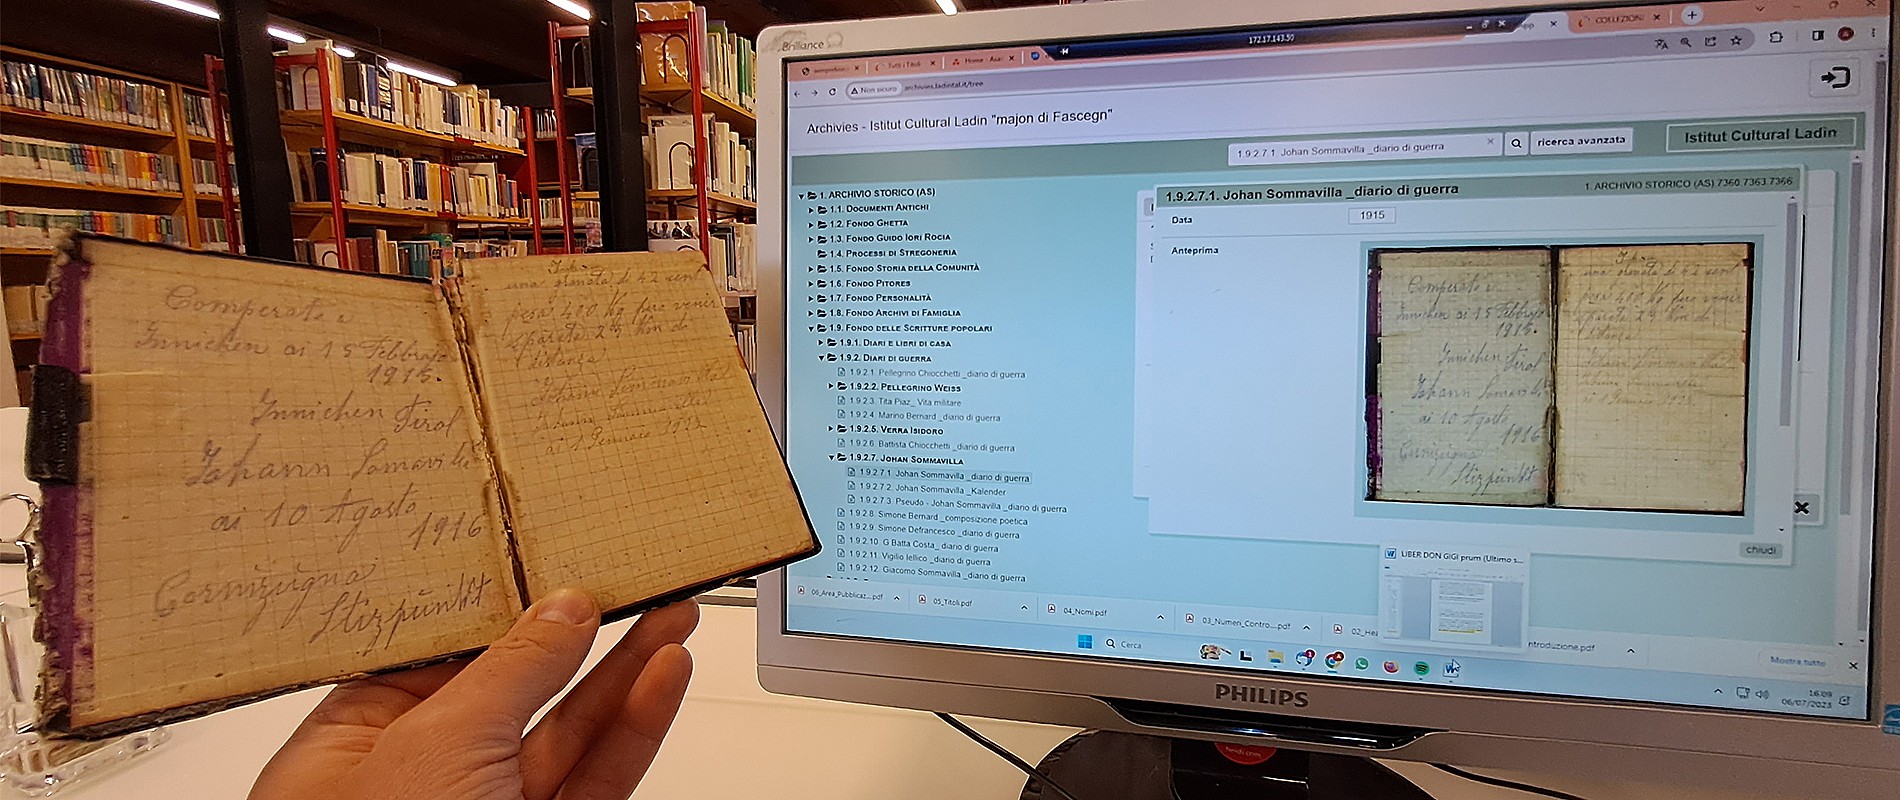 Comperato a
Innichen ai 15 Febbrajo
1915.
Innichen Tirol
Johann Somavilla
ai 10 Agosto
1916
Stizpünkt
una granata di 42 cent
pesa 400 Kg
distanza
Johann Sommavilla
ai 1 Gennaio
Brilliance
172.17.143.50
Tutti i Titoli
Home - Asa
COLLEZIONI
Non sicuro
archivies.ladintal.it/tree
Archivies - Istitut Cultural Ladin "majon di Fascegn"
1.9.2.7.1. Johan Sommavilla _diario di guerra
ricerca avanzata
Istitut Cultural Ladin
1. ARCHIVIO STORICO (AS)
1.1. DOCUMENTI ANTICHI
1.2. FONDO GHETTA
1.3. FONDO GUIDO IORI ROCIA
1.4. PROCESSI DI STREGONERIA
1.5. FONDO STORIA DELLA COMUNITÀ
1.6. FONDO PITORES
1.7. FONDO PERSONALITÀ
1.8. FONDO ARCHIVI DI FAMIGLIA
1.9. FONDO DELLE SCRITTURE POPOLARI
1.9.1. DIARI E LIBRI DI CASA
1.9.2. DIARI DI GUERRA
1.9.2.1. Pellegrino Chiocchetti _diario di guerra
1.9.2.2. PELLEGRINO WEISS
1.9.2.3. Tita Piaz_ Vita militare
1.9.2.4. Marino Bernard _diario di guerra
1.9.2.5. VERRA ISIDORO
1.9.2.6. Battista Chiocchetti _diario di guerra
1.9.2.7. JOHAN SOMMAVILLA
1.9.2.7.1. Johan Sommavilla _diario di guerra
1.9.2.7.2. Johan Sommavilla _Kalender
1.9.2.7.3. Pseudo - Johan Sommavilla _diario di guerra
1.9.2.8. Simone Bernard _composizione poetica
1.9.2.9. Simone Defrancesco _diario di guerra
1.9.2.10. G Batta Costa_ diario di guerra
1.9.2.11. Vigilio Iellico _diario di guerra
1.9.2.12. Giacomo Sommavilla _diario di guerra
1.9.2.7.1. Johan Sommavilla _diario di guerra
1. ARCHIVIO STORICO (AS) 7360.7363.7366
Data
1915
Anteprima
Comperato a
Innichen ai 15 Febbrajo
1915.
Innichen Tirol
Johann Somavilla
ai 10 Agosto
1916
Stizpünkt
una granata di 42 cent
pesa 400 Kg
chiudi
LIBER DON GIGI prum (Ultimo s...
06_Area_Pubblicaz....pdf
05_Titoli.pdf
04_Nomi.pdf
03_Numeri_Contro....pdf
02_Hea
ntroduzione.pdf
Mostra tutto
Cerca
16:09
06/07/2023
PHILIPS